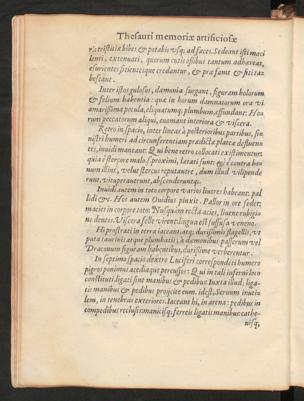 Thesauri memoriæ artificiosæ
ris tristitiæ bibes & potabis vsq; ad fæces. Sedeant isti maci
lenti, extenuati, quorum cutis ossibus tantum adhæreat,
esurientes sitientesque credantur, & præ fame & siti ta-
bescant.
Inter istos gulosus, dæmonia surgant, figuram holorum
& felium habentia: quæ in horum damnatorum ora vi
amarissima pocula, eliquatumq; plumbum, effundant: Hoc
rum peccatorum aliqui, euomant interiora & viscera.
Retro in spacio, inter lineas à posterioribus partibus, sini
nistri humeri ad circumferentiam prædictæ plateæ desluen
tes, inuidi maneant. Qui bene retro collocari existimentur:
quia è stercore malo. s. proximi, lætati sunt: & è contra bo
num illius, velut stercus reputantes, dum illud vilipende
runt, vituperauerunt, absconderuntq;.
Inuidi autem in toto corpore varios liuores habeant: pal
lidi &c. Hos autem Ouidius pinxit. Pallor in ore sedet:
macies in corpore toto: Nusquam recta acies, liuent rubigi
ne dentes. Viscera felle virent: lingua est suffusa veneno.
Hi prostrati in terra iaceant: atq; durissimis flagellis, vt
puta taurinis atque plumbatis; à dæmonibus passerum vel
Draconum figuram habentibus, durissime verberentur.
In septimo spacio dextro Luciferi correspondenti humero
pigros ponimus acediaque percussos: Qui in tali inferni loco
constituti, ligati sint manibus & pedibus: Iuxta illud, liga-
tis manibus & pedibus proijcite eum. idest, Seruum inuti-
lem, in tenebras exteriores. Iaceant hi, in arena: pedibus in
compedibus reclusis: manicisq; ferreis ligatis manibus: cathe-
nisq,